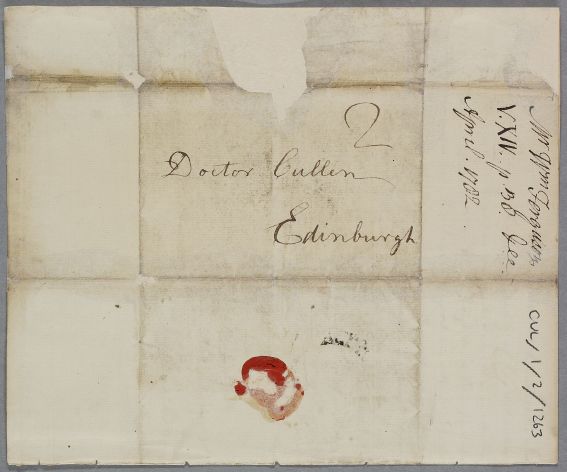 2
Doctor Cullen
Edinburgh
Mr Wm Ferguson
V. XIV. p. 138. Dec.
April. 1782
CUL/1/2/1263